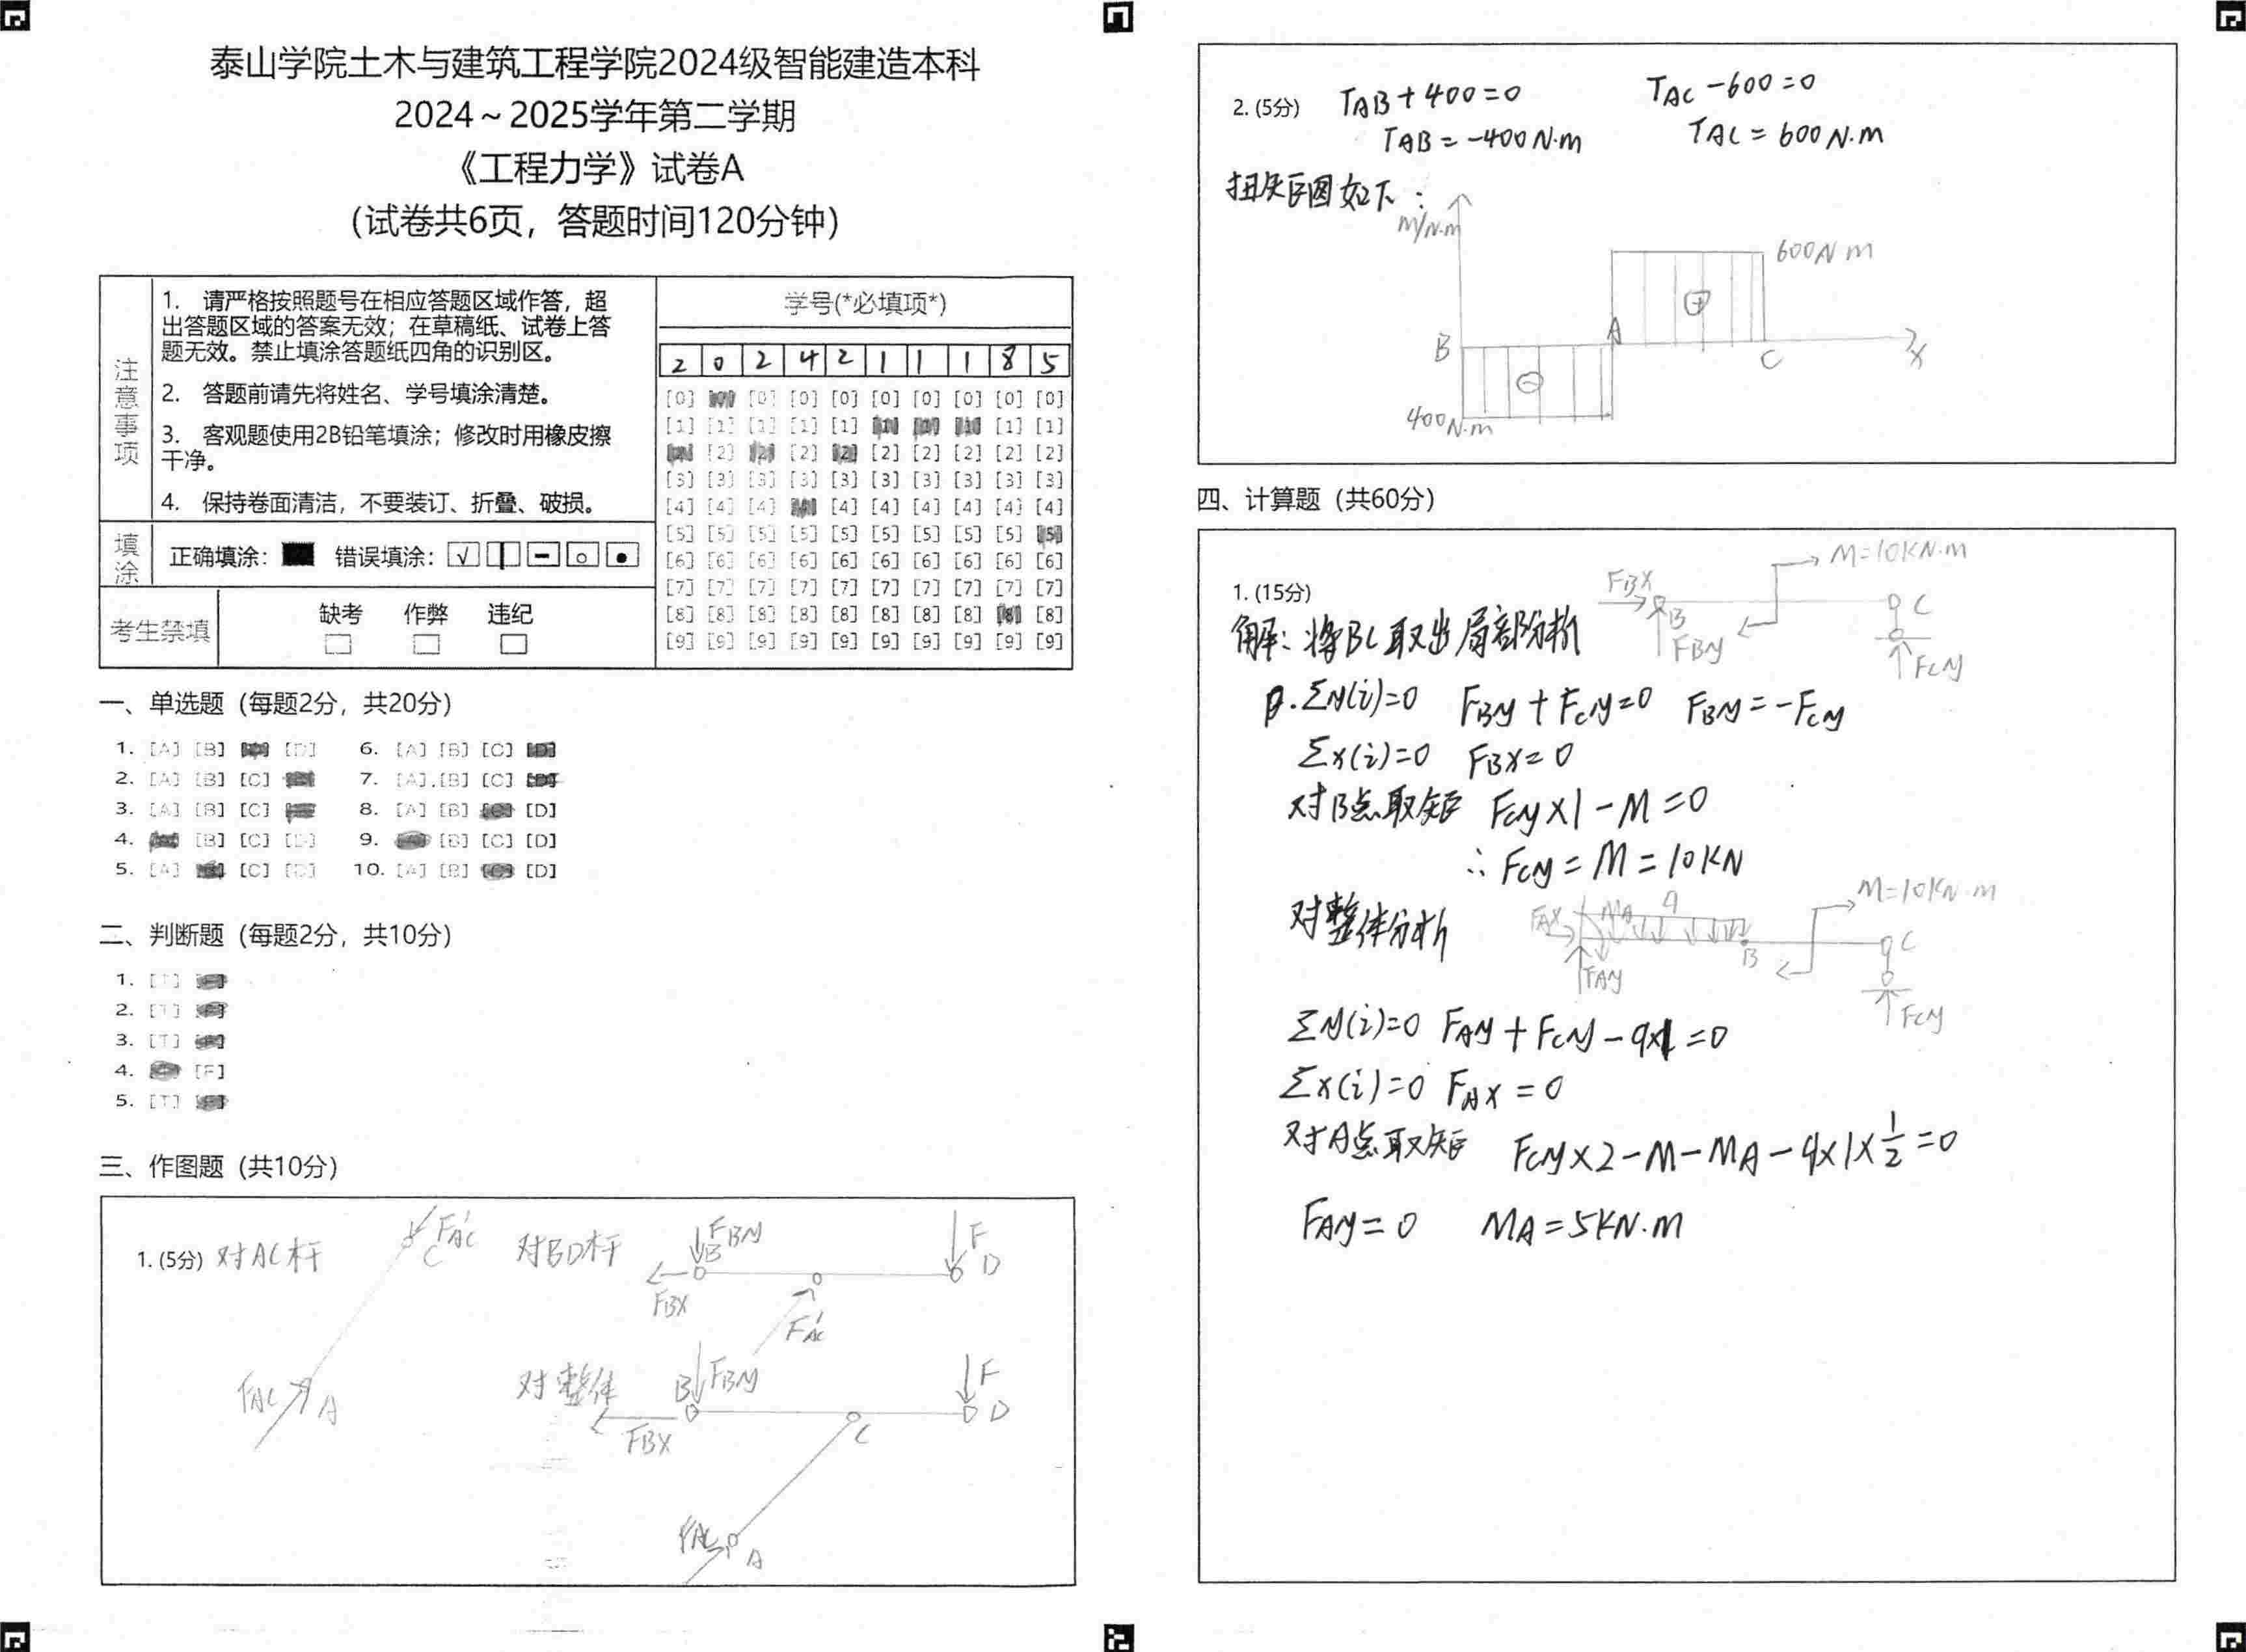 泰山学院土木与建筑工程学院2024级智能建造本科
2024～2025学年第二学期
《工程力学》试卷A
(试卷共6页，答题时间120分钟)
注意事项
1. 请严格按照题号在相应答题区域作答，超
出答题区域的答案无效；在草稿纸、试卷上答
题无效。禁止填涂答题纸四角的识别区。
2. 答题前请先将姓名、学号填涂清楚。
3. 客观题使用2B铅笔填涂；修改时用橡皮擦
干净。
4. 保持卷面清洁，不要装订、折叠、破损。
填涂
正确填涂： 错误填涂：
考生禁填
缺考 作弊 违纪
学号(*必填项*)
2 0 2 4 2 1 1 1 8 5
[0] [0] [0] [0] [0] [0] [0] [0] [0]
[1] [1] [1] [1] [1] [1] [1]
[2] [2] [2] [2] [2] [2] [2]
[3] [3] [3] [3] [3] [3] [3] [3] [3] [3]
[4] [4] [4] [4] [4] [4] [4] [4] [4]
[5] [5] [5] [5] [5] [5] [5] [5] [5] [5]
[6] [6] [6] [6] [6] [6] [6] [6] [6] [6]
[7] [7] [7] [7] [7] [7] [7] [7] [7] [7]
[8] [8] [8] [8] [8] [8] [8] [8] [8] [8]
[9] [9] [9] [9] [9] [9] [9] [9] [9] [9]
一、单选题 (每题2分，共20分)
1. [A] [B] [D] 6. [A] [B] [C] [D]
2. [A] [B] [C] 7. [A] [B] [C]
3. [A] [B] [C] 8. [A] [B] [C] [D]
4. [B] [C] [D] 9. [B] [C] [D]
5. [A] [C] [D] 10. [A] [B] [C] [D]
二、判断题 (每题2分，共10分)
1. [T]
2. [T]
3. [T]
4. [F]
5. [T]
三、作图题 (共10分)
1. (5分) 对AC杆
F'AC
C
FAC
A
对BD杆
FBy
B
FBX
F
D
F'AC
对整体
B
FBy
FBX
F
D
C
FAC
A
2. (5分) TAB+400=0 TAC-600=0
TAB=-400N·m TAC=600N·m
扭矩图如下：
M/N·m
600N·m
B
A
C
X
400N·m
四、计算题 (共60分)
1. (15分)
FBX
B
FBy
M=10KN·m
C
FCy
解：将BC取出局部分析
Σy(i)=0 FBy+FCy=0 FBy=-FCy
Σx(i)=0 FBX=0
对B点取矩 FCy×1-M=0
∴FCy=M=10KN
对整体分析
FAX
MA
q
FAy
B
M=10KN·m
C
FCy
Σy(i)=0 FAy+FCy-q×1=0
Σx(i)=0 FAX=0
对A点取矩 FCy×2-M-MA-q×1×1/2=0
FAy=0 MA=5KN·m